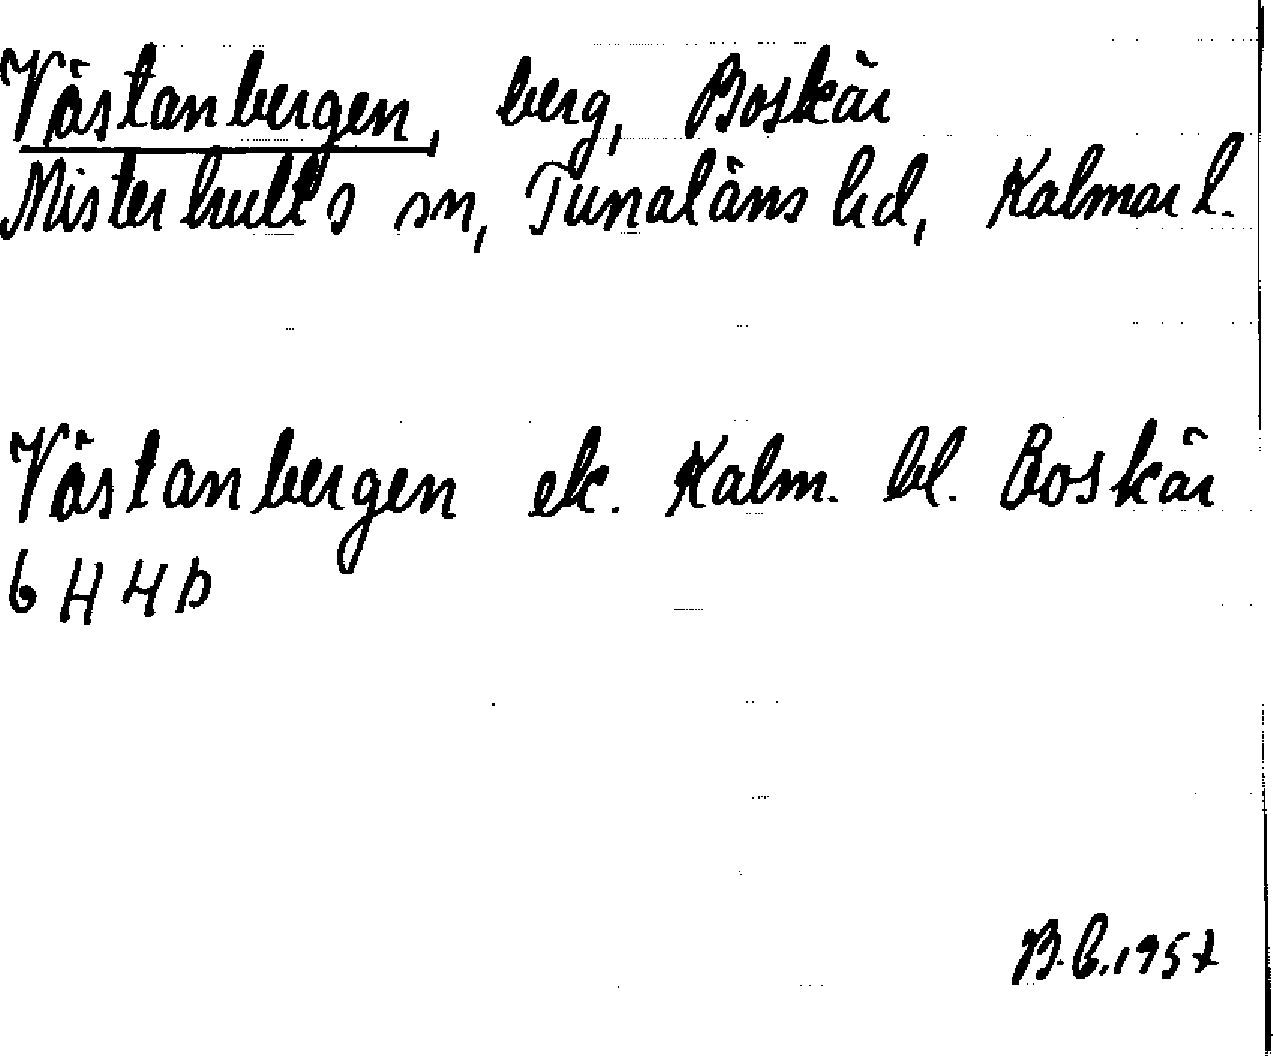 Västanbergen, berg, Boskär
Misterhults sn, Tunaläns hd, Kalmar l.
Västanbergen ek. Kalm. bl. Boskär
6 H 4 b
B.G. 1957